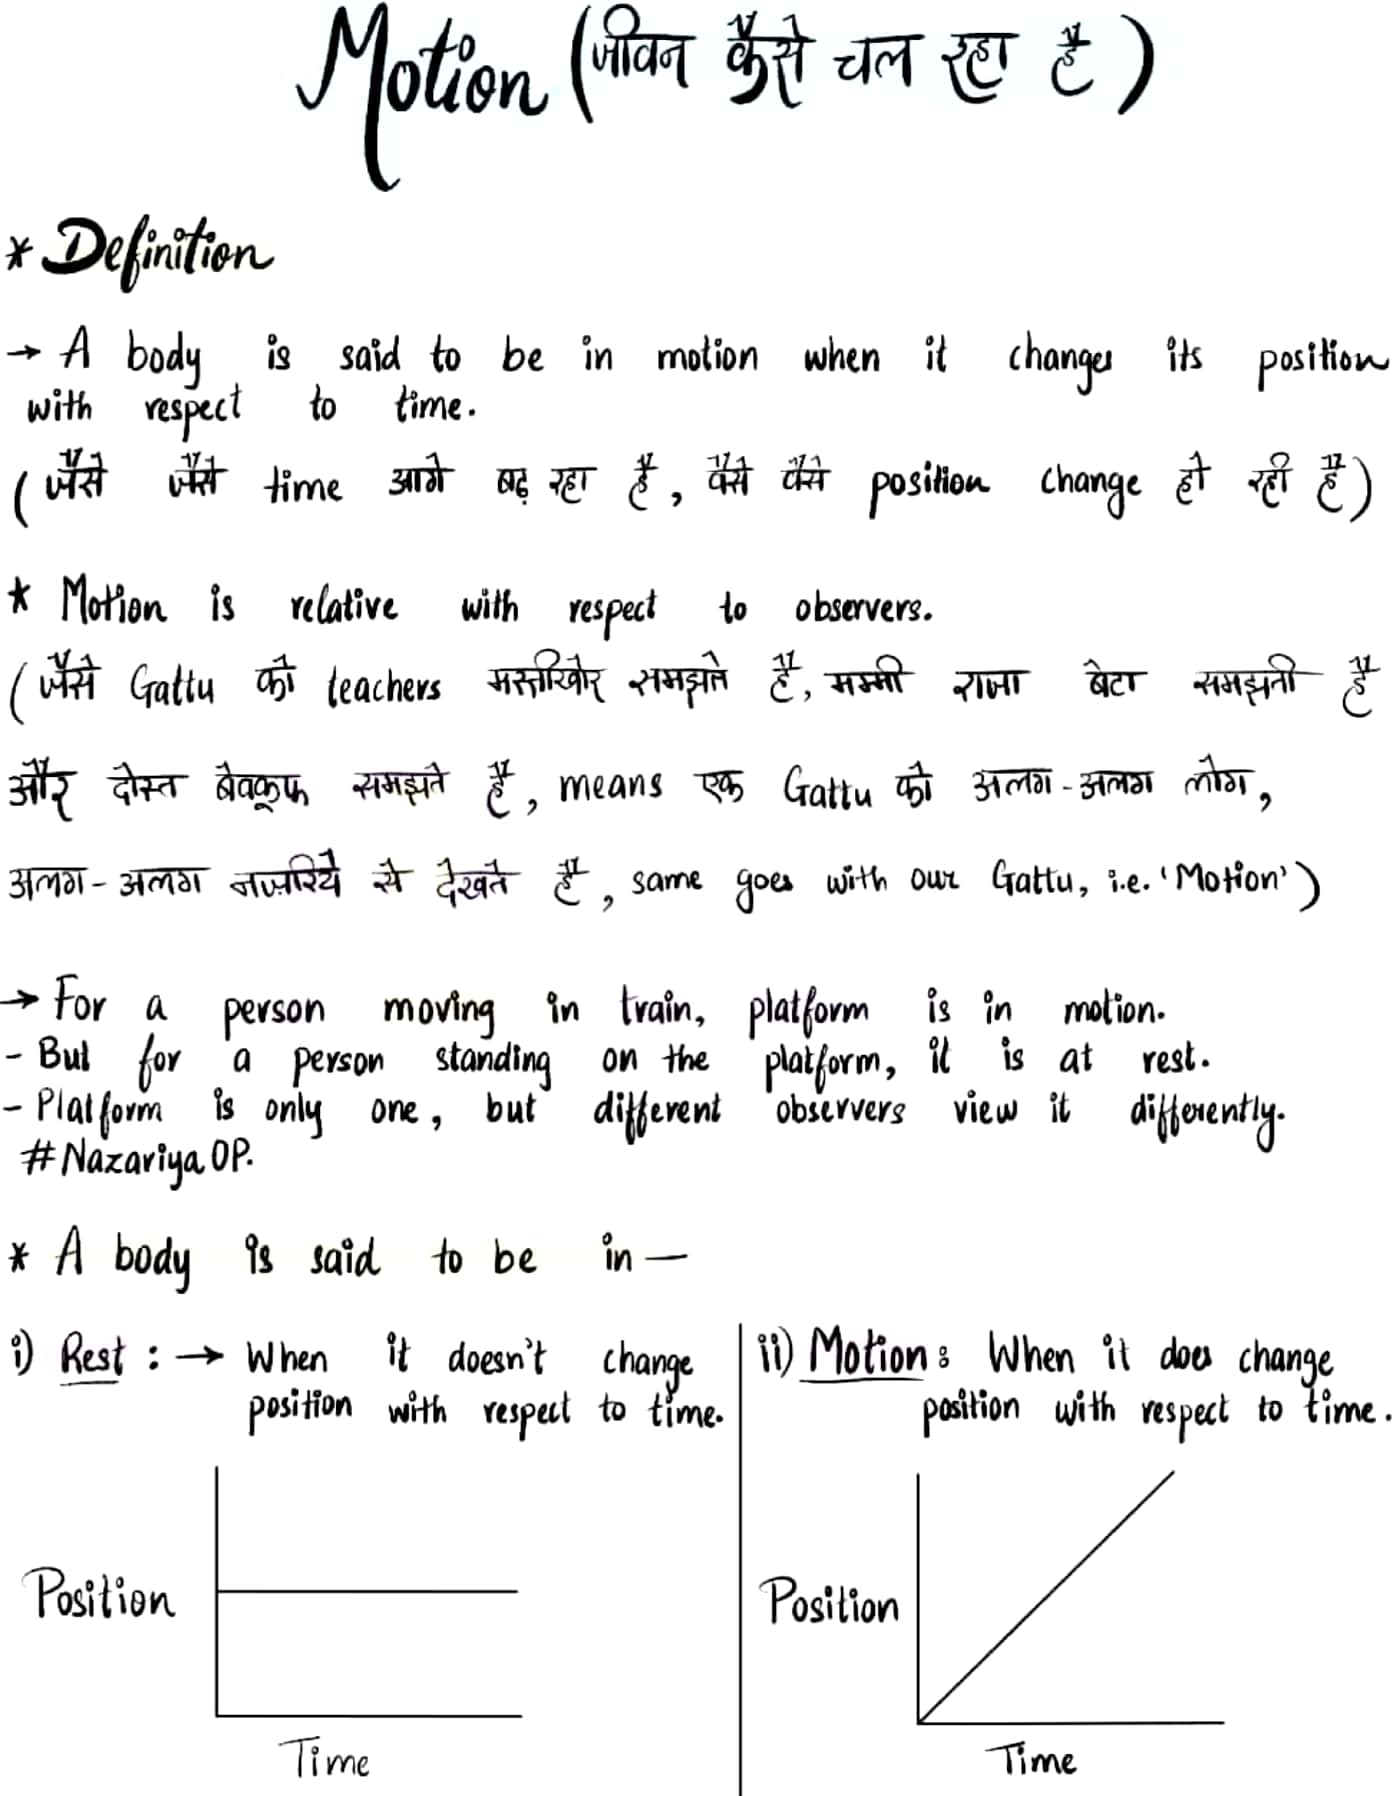 Motion (जीवन कैसे चल रहा है)
* Definition
→ A body is said to be in motion when it changes its position
with respect to time.
(जैसे जैसे time आगे बढ़ रहा है, वैसे वैसे position change हो रही है)
* Motion is relative with respect to observers.
(जैसे Gattu को teachers मस्तीखोर समझते हैं, मम्मी राजा बेटा समझती है
और दोस्त बेवकूफ समझते हैं, means एक Gattu को अलग-अलग लोग,
अलग-अलग नज़रिये से देखते हैं, same goes with our Gattu, i.e. 'Motion')
→ For a person moving in train, platform is in motion.
- But for a person standing on the platform, it is at rest.
- Platform is only one, but different observers view it differently.
#Nazariya OP.
* A body is said to be in —
i) Rest : → When it doesn't change
position with respect to time.
Position
Time
ii) Motion : When it does change
position with respect to time.
Position
Time